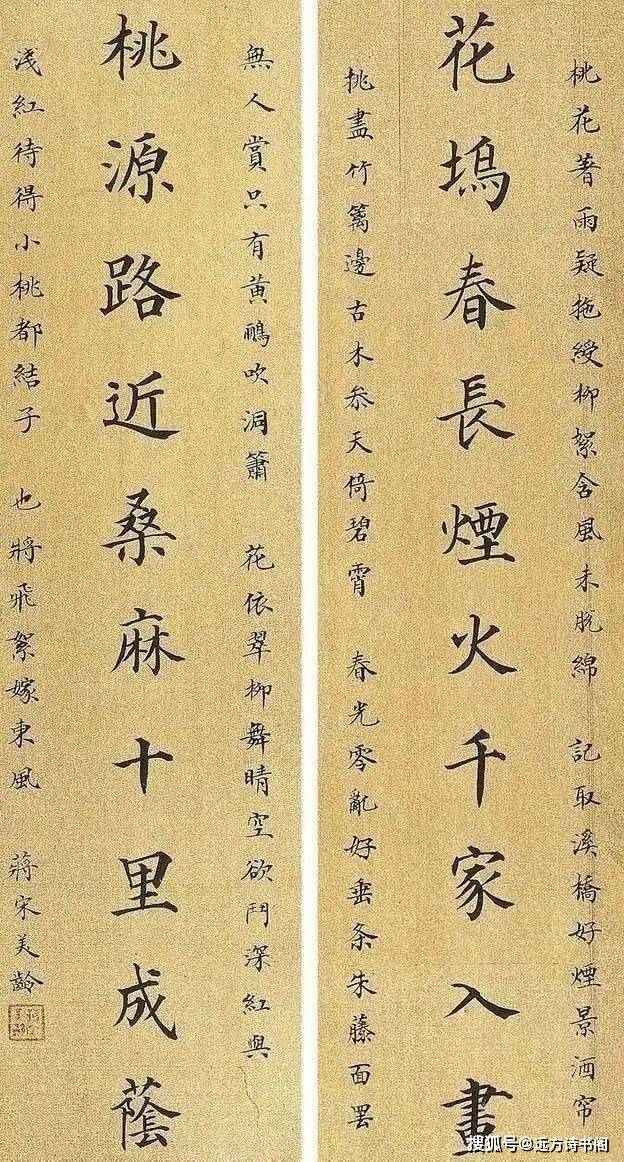 桃花著雨疑拖綬柳絮含風未脫綿　記取溪橋好煙景酒帘
花塢春長煙火千家入畫
挑盡竹籬邊古木叅天倚碧霄　春光零亂好垂条朱藤面罢
無人賞只有黄鸝吹洞簫　花依翠柳舞晴空欲鬥深紅與
桃源路近桑麻十里成蔭
浅紅待得小桃都結子　也將飛絮嫁東風　蔣宋美齡
搜狐号@远方诗书阁